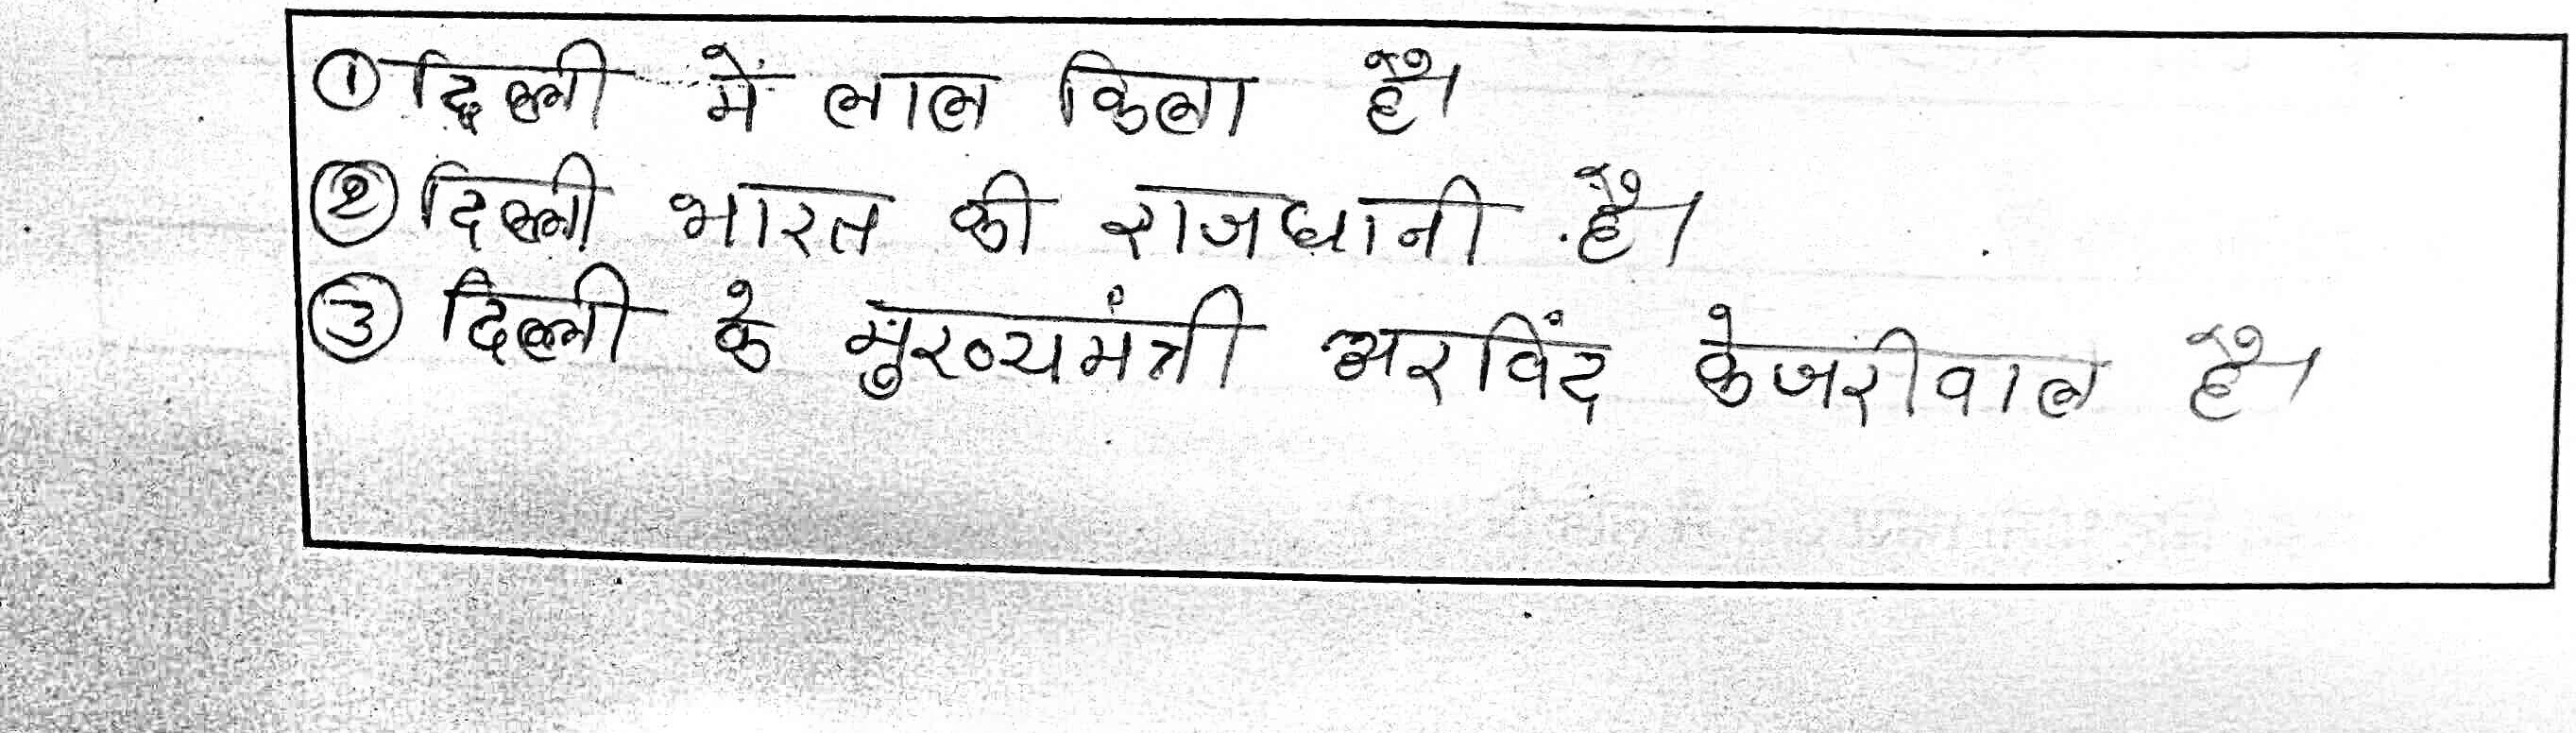 ① दिल्ली में लाल किला है।
② दिल्ली भारत की राजधानी है।
③ दिल्ली के मुख्यमंत्री अरविंद केजरीवाल है।